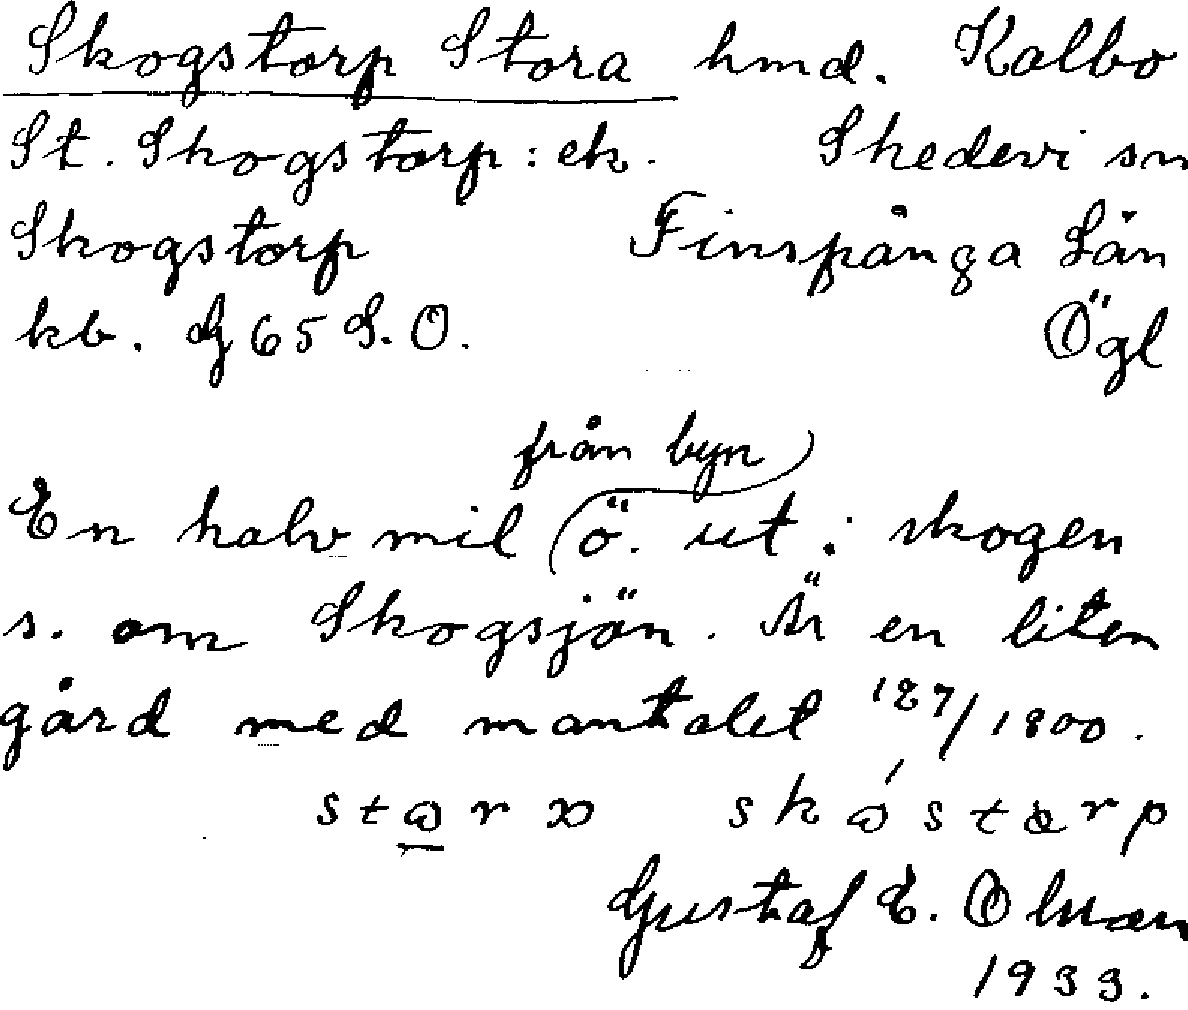 Skogstorp Stora hmd. Kalbo
St. Skogstorp: ek. Skedevi sn
Skogstorp Finspånga Län
kb. G 65 S.O. Ögl
från byn
En halv mil ö. ut i skogen
s. om Skogsjön. Är en liten
gård med mantalet 127/1800.
Gustaf E. Olman
1933.